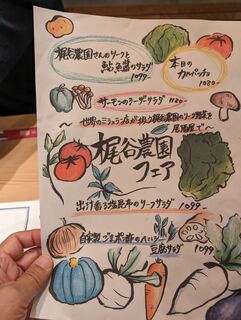 梶谷農園さんのリーフと
鮎魚醤のサラダ
1099-
本日の
カルパッチョ
1080-
サーモンのラーブサラダ 1120-
〜世界のミシュラン店が扱う梶谷農園のリーフ野菜を
居酒屋で〜
梶谷農園
フェア
出汁香る塩昆布のリーフサラダ 1099-
自家製ごまポン酢のヘルシー
豆腐サラダ 1099